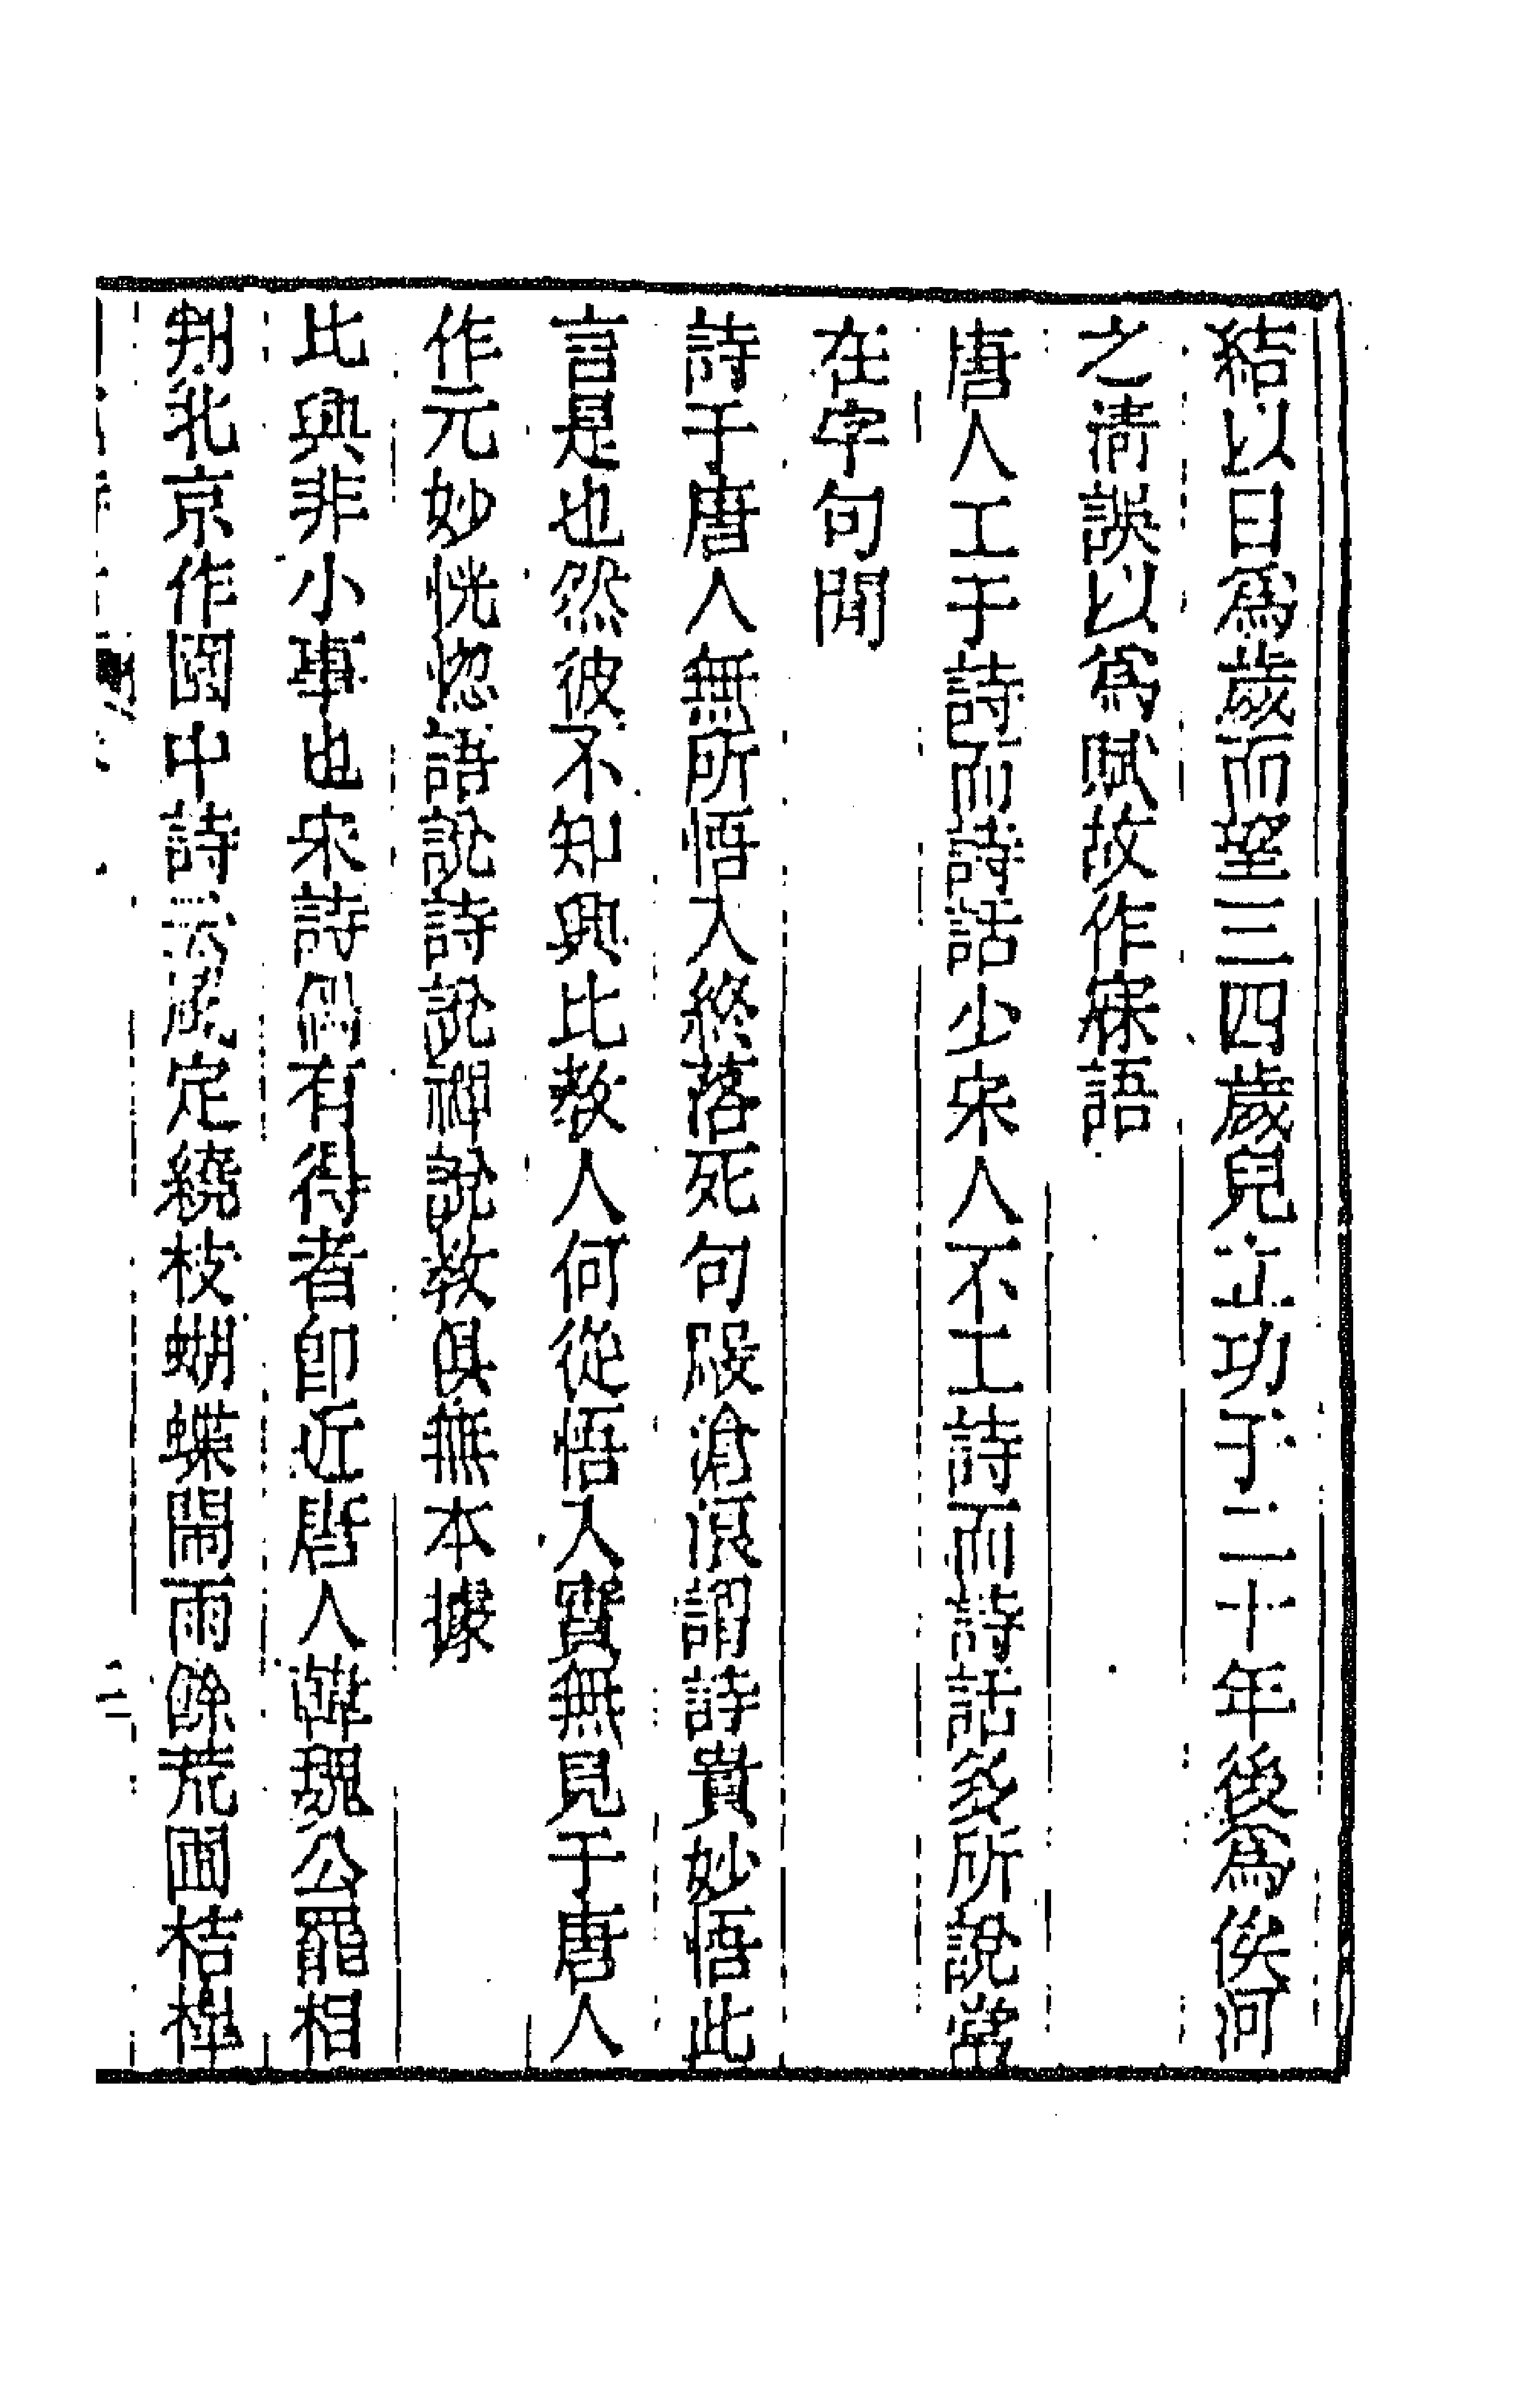 結以日爲歲而望三四歲兒立功于二十年後爲俟河
之淸誤以爲賦故作寐語
唐人工于詩而詩話少宋人不工詩而詩話多所說常
在字句間
詩于唐人無所悟入終落死句嚴滄浪謂詩貴妙悟此
言是也然彼不知興比教人何從悟入實無見于唐人
作元妙恍惚語說詩說禪說教俱無本據
比興非小事也宋詩偶有得者卽近唐人韓魏公罷相
判北京作園中詩云風定繞枝蝴蝶鬧雨餘荒圃桔槔
二